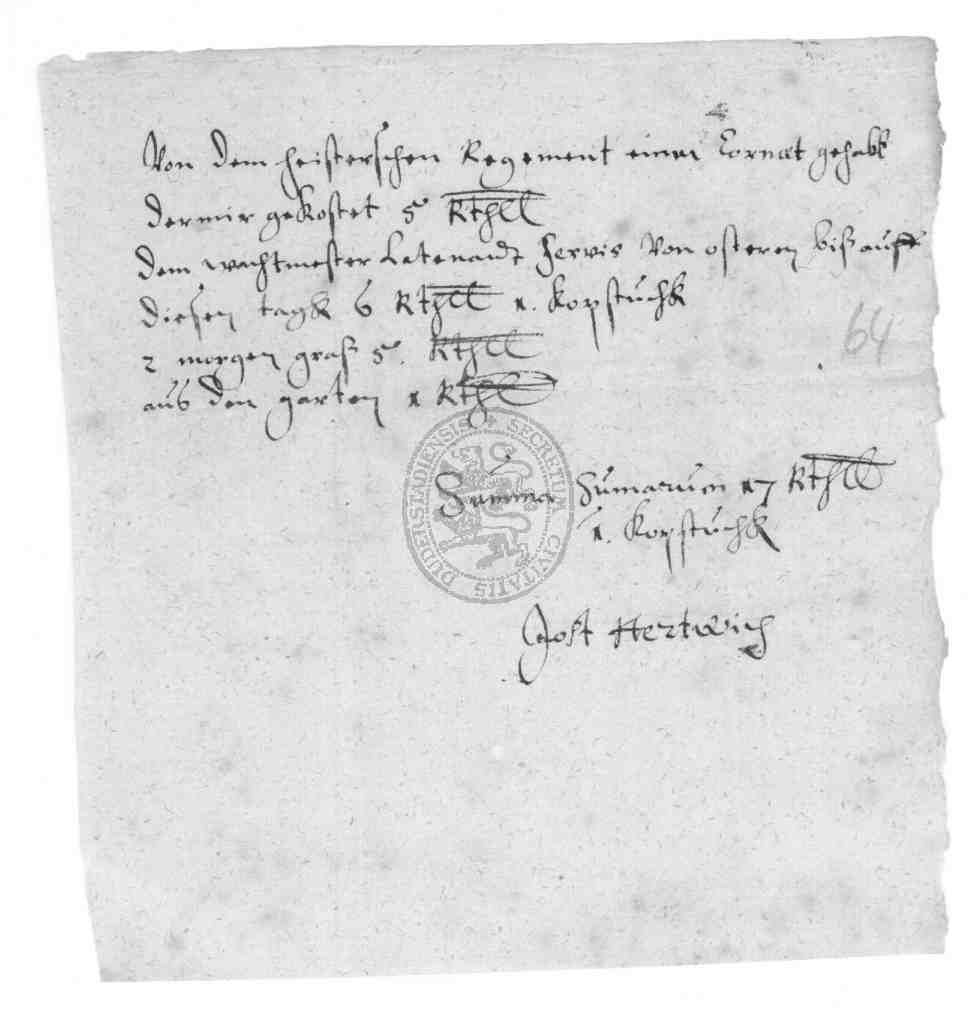 Von dem heisterschen Regement einen Cornet gehabt
der mir gekostet 5 Rthll
dem wachtmester Letenandt servis Von osteren biß auff
diesen tagk 6 Rthll 1. Kopstuchk
2 morgen graß 5. Rthll
aus den garten 1 Rthll
64
Summa Sumarum 17 Rthll
1. Kopstuchk
Jost Hertwich
SECRETUM CIVITATIS DUDERSTADIENSIS